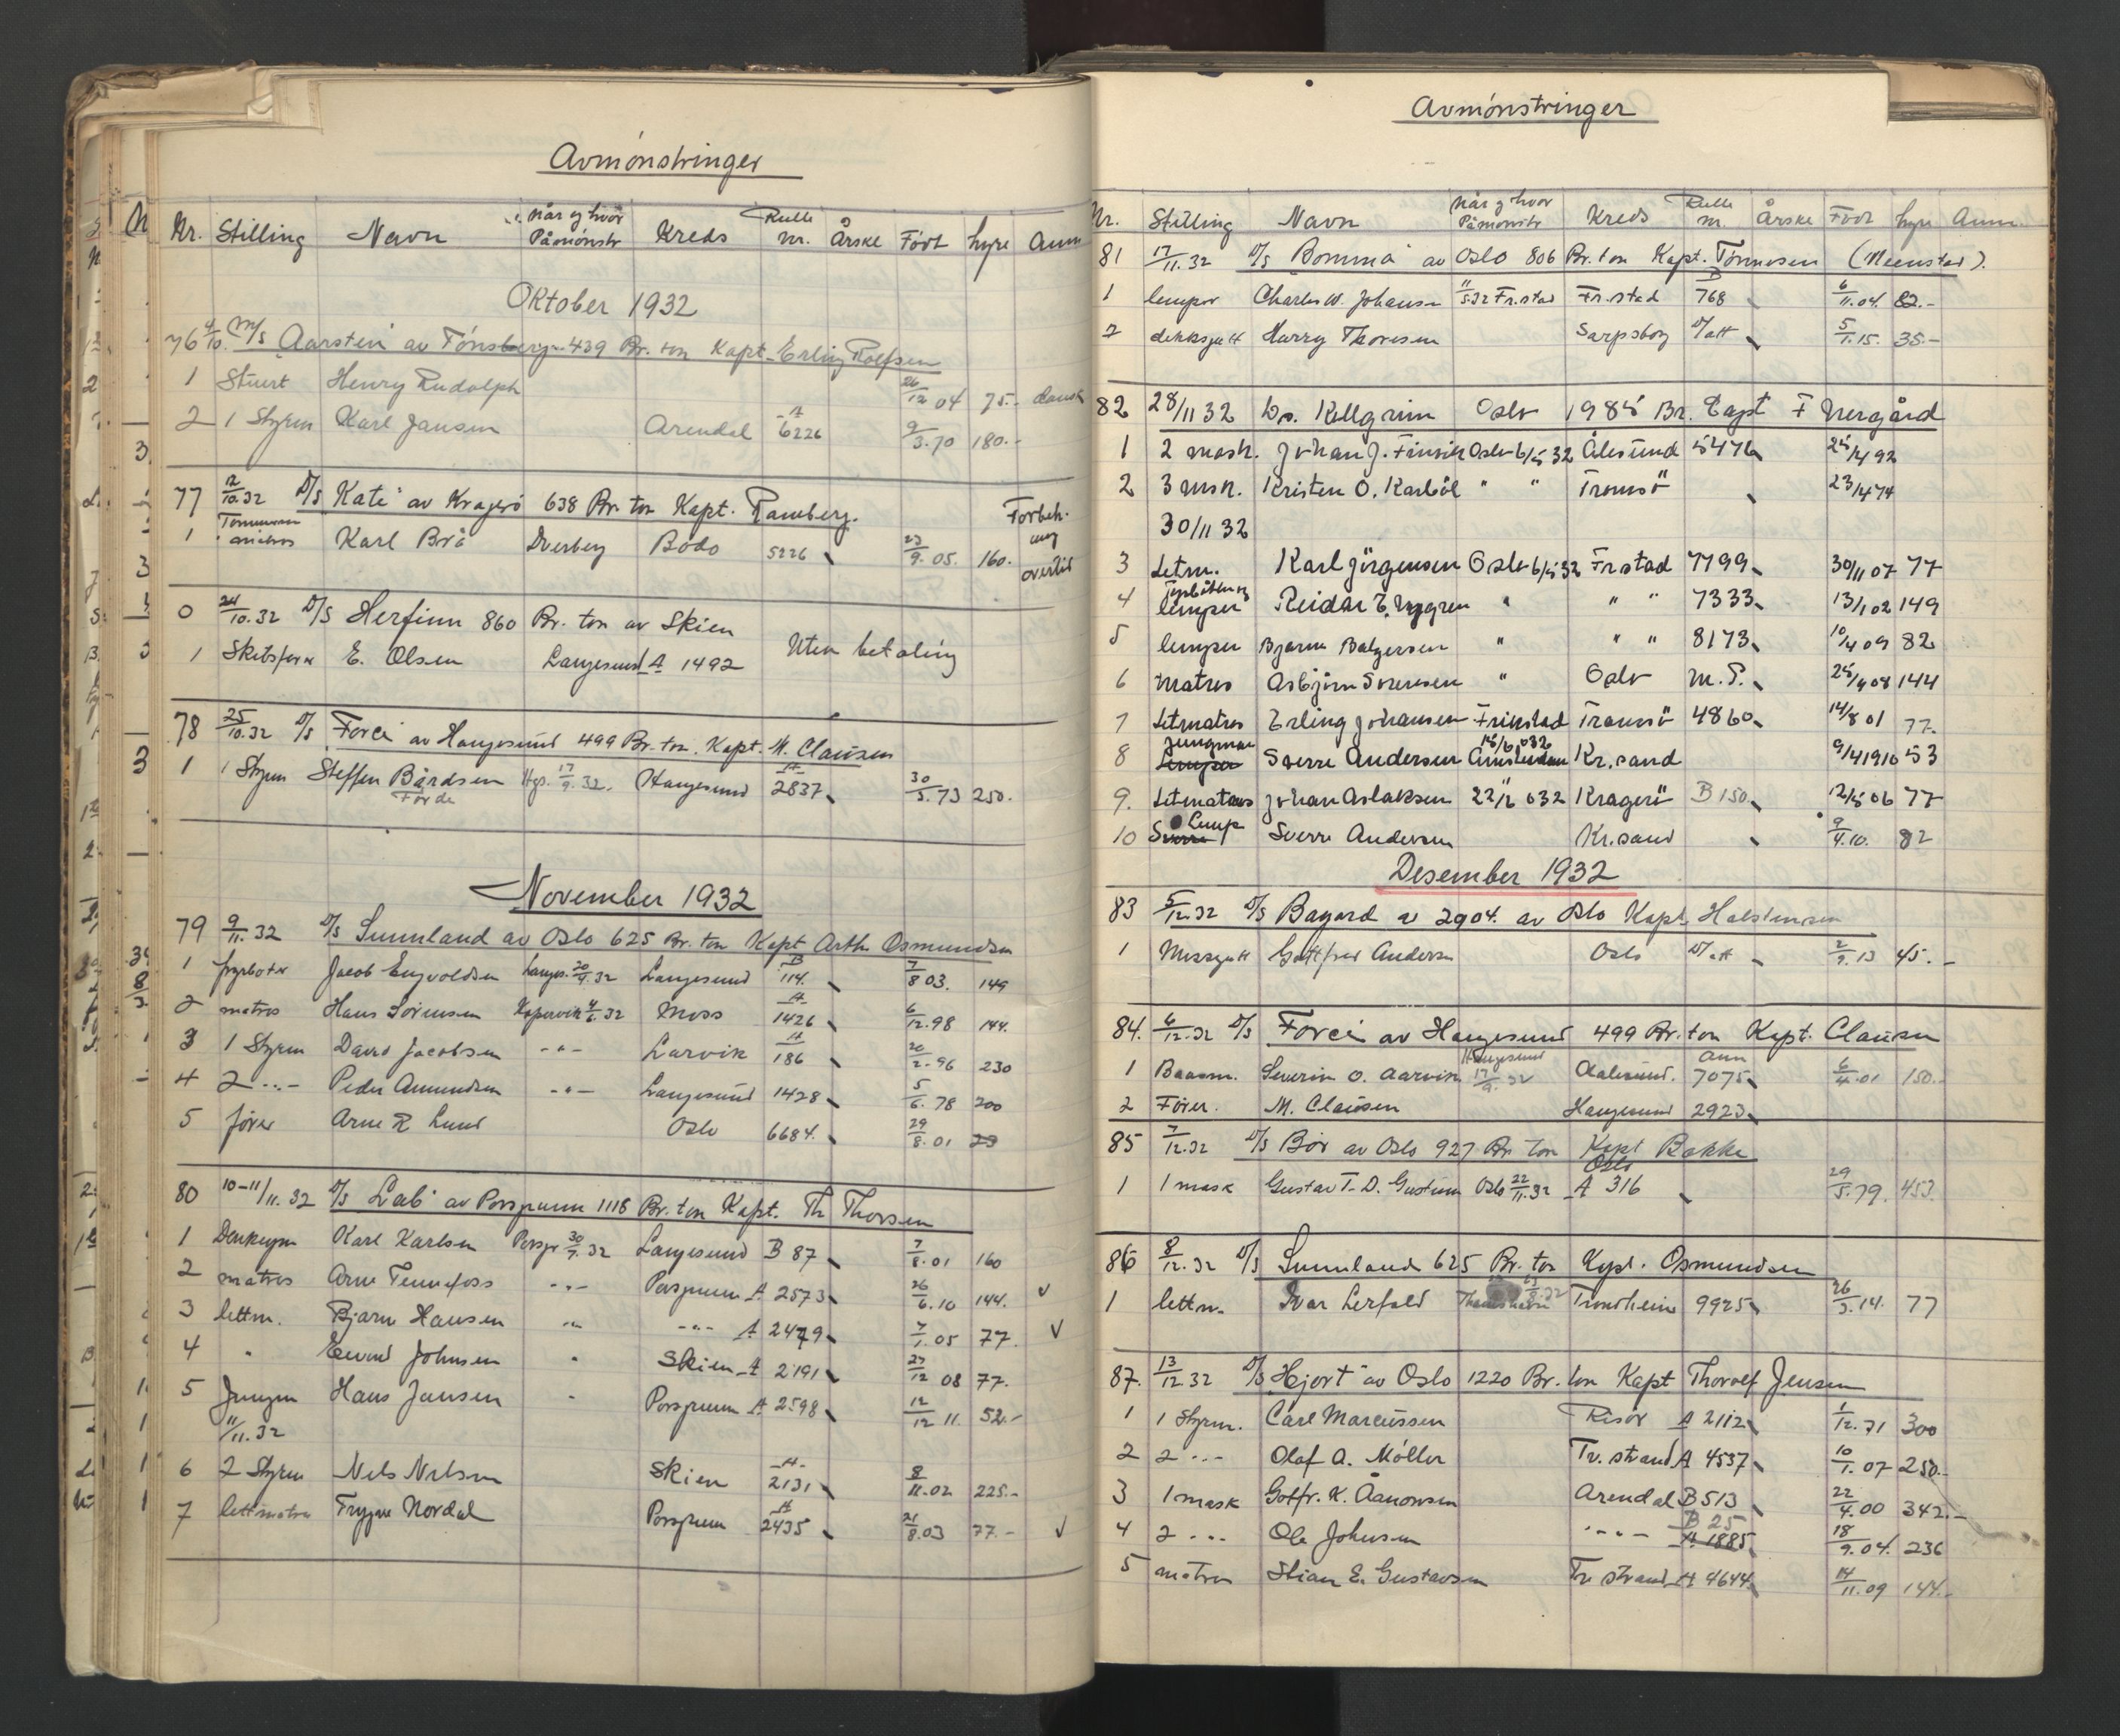 Avmönstringer
Nr. Stilling Navn når og hvor Påmönstr Kreds Rulle nr. Årske Födt hyre Anm
Oktober 1932
76 4/10. M/S Aarstein av Tönsberg 439 Br. ton Kapt. Erling Rolfsen
1 Stuert Henry Rudolph 26/12 04 75.- dansk
2 1 Styrm Karl Jansen Arendal A 6226 9/3.70 180.-
77 12/10.32 D/S Kate av Kragerö 638 Br. ton Kapt. Ramberg.
1 Karl Brå Dverberg Bodo 5226 23/9.05. 160.
0 24/10.32 D/S Herfinn 860 Br. ton av Skien
1 E. Olsen Langesund A 1492 Uten betaling
78 25/10.32 D/S Forei av Haugesund 499 Br. ton. Kapt. M. Clausen
1 1 Styrm Steffen Bårdsen Förde Hgs. 17/9.32. Haugesund A 2837 30/3.73 250.
November 1932
79 9/11.32 D/S Sunnland av Oslo 625 Br. ton Kapt Arth Osmundsen
1 fyrböter Jacob Engvoldsen Langes. 20/9.32 Langesund B 114. 7/8 03. 149
2 matros Hans Sörensen Kopervik 4/6.32 Moss A 1426 6/12.98 144.
3 1 Styrm David Jacobsen -"- Larvik A 186 20/2.96 230
4 2 -"- Peder Amundsen -"- Langesund 1428 5/6.78 200
5 förer Arne R Lund Oslo 6684. 29/8.01
80 10-11/11.32 D/S Lab av Porsgrunn 1118 Br. ton Kapt. Th Thorsen
1 Karl Karlsen Porsgr 30/7.32 Langesund B 87 7/8.01 160
2 matros Arne Tennefoss -"- Porsgrunn A 2573 26/6.10 144.
3 lettm. Bjarne Hansen -"- -"- A 2479 7/1.05 77.
4 " Eivind Johnsen " Skien A 2191 27/12 08 77.
5 Jungm Hans Jansen " Porsgrunn A 2598 12/12 11. 52.-
11/11.32
6 2 Styrm Nils Nilsen Skien A 2131 8/11.02 225.-
7 lettmatros Trygve Nordal Porsgrunn A 2435 21/8.03 77.-
Avmönstringer
Nr. Stilling Navn når og hvor Påmönstr Kreds Rulle nr. Årske Födt hyre Anm.
81 17/11.32 D/S Bomma av Oslo 806 Br. ton Kapt. Tönnesen
1 lemper Charles W. Johansen 11/5 32 Fr.stad Fr.stad B 768 6/11.04. 82.-
2 dekksgutt Harry Thoresen Sarpsborg 5/1.15. 35.-
82 28/11 32 Ds. Kellgrim Oslo 1985 Br. Capt F Nergård
1 2 mask. Johan J. Oslo 6/5 32 Ålesund 5476 25/4 92
2 3 msk. Kristen O. Karlböl " " Tromsö 23/4 74
30/11 32
3 Letm. Karl Jörgensen Oslo 6/5 32 Frstad 7799 30/11 07 77
4 Fyrböter og lemper Reidar E. Nygren " " " 7333 13/1 02 149
5 lemper Bjarne Balgersen " " " 8173 10/4 09 82
6 Matros Asbjörn Sörensen " Oslo M.P. 25/4 08 144
7 Letmatros Erling Johansen Frikstad Tromsö 4860 14/8 01 77.
8 Jungman Sverre Andersen 15/6 032 Amsterdam Kr.sand 9/4 1910 53
9. Letmatros Johan Aslaksen 22/6 032 Kragerö B 150 12/5 06 77
10 Lemp Sverre Andersen Kr.sand 9/4.10. 82
Desember 1932
83 5/12.32 D/S Bayard 2904. av Oslo Kapt. Halstensen
1 Messgutt Gottfred Andersen Oslo 2/9.13 45.-
84. 6/12.32 D/S Forei av Haugesund 499 Br. ton Kapt. Clausen
1 Baasm. Severin O. Aarvik Haugesund 17/9.32 Aalesund. Ann 7075 6/4.01 150.-
2 Förer. M. Clausen Haugesund 2923
85 7/12.32 D/S Bör av Oslo 927 Br. ton Kapt Bakke
1 1 mask Gustav T. D. Oslo 22/11.32 Oslo A 316 29/5.79. 453.
86 8/12.32 D/S Sunnland 625 Br. ton Kapt. Osmundsen
1 lettm. Ivar Lerfald Thamshavn Trondheim 9925 26/3.14. 77
87. 13/12.32 D/S Hjort av Oslo 1220 Br. ton Kapt Thorolf Jensen
1 1 Styrm. Carl Marcussen Risör A 2112 1/12.71 300
2 2 -"- Olaf A. Möller Tv. strand A 4537 10/1.07 250.-
3 1 mask Gotfr. K. Aanonsen Arendal B 513 22/4.00 342.-
4 2 -"- Ole Johnsen -"- B 25 A 1885 18/9.04. 236
5 matros Stian E. Gustavsen Tv strand A 4644 14/11.09 144.-